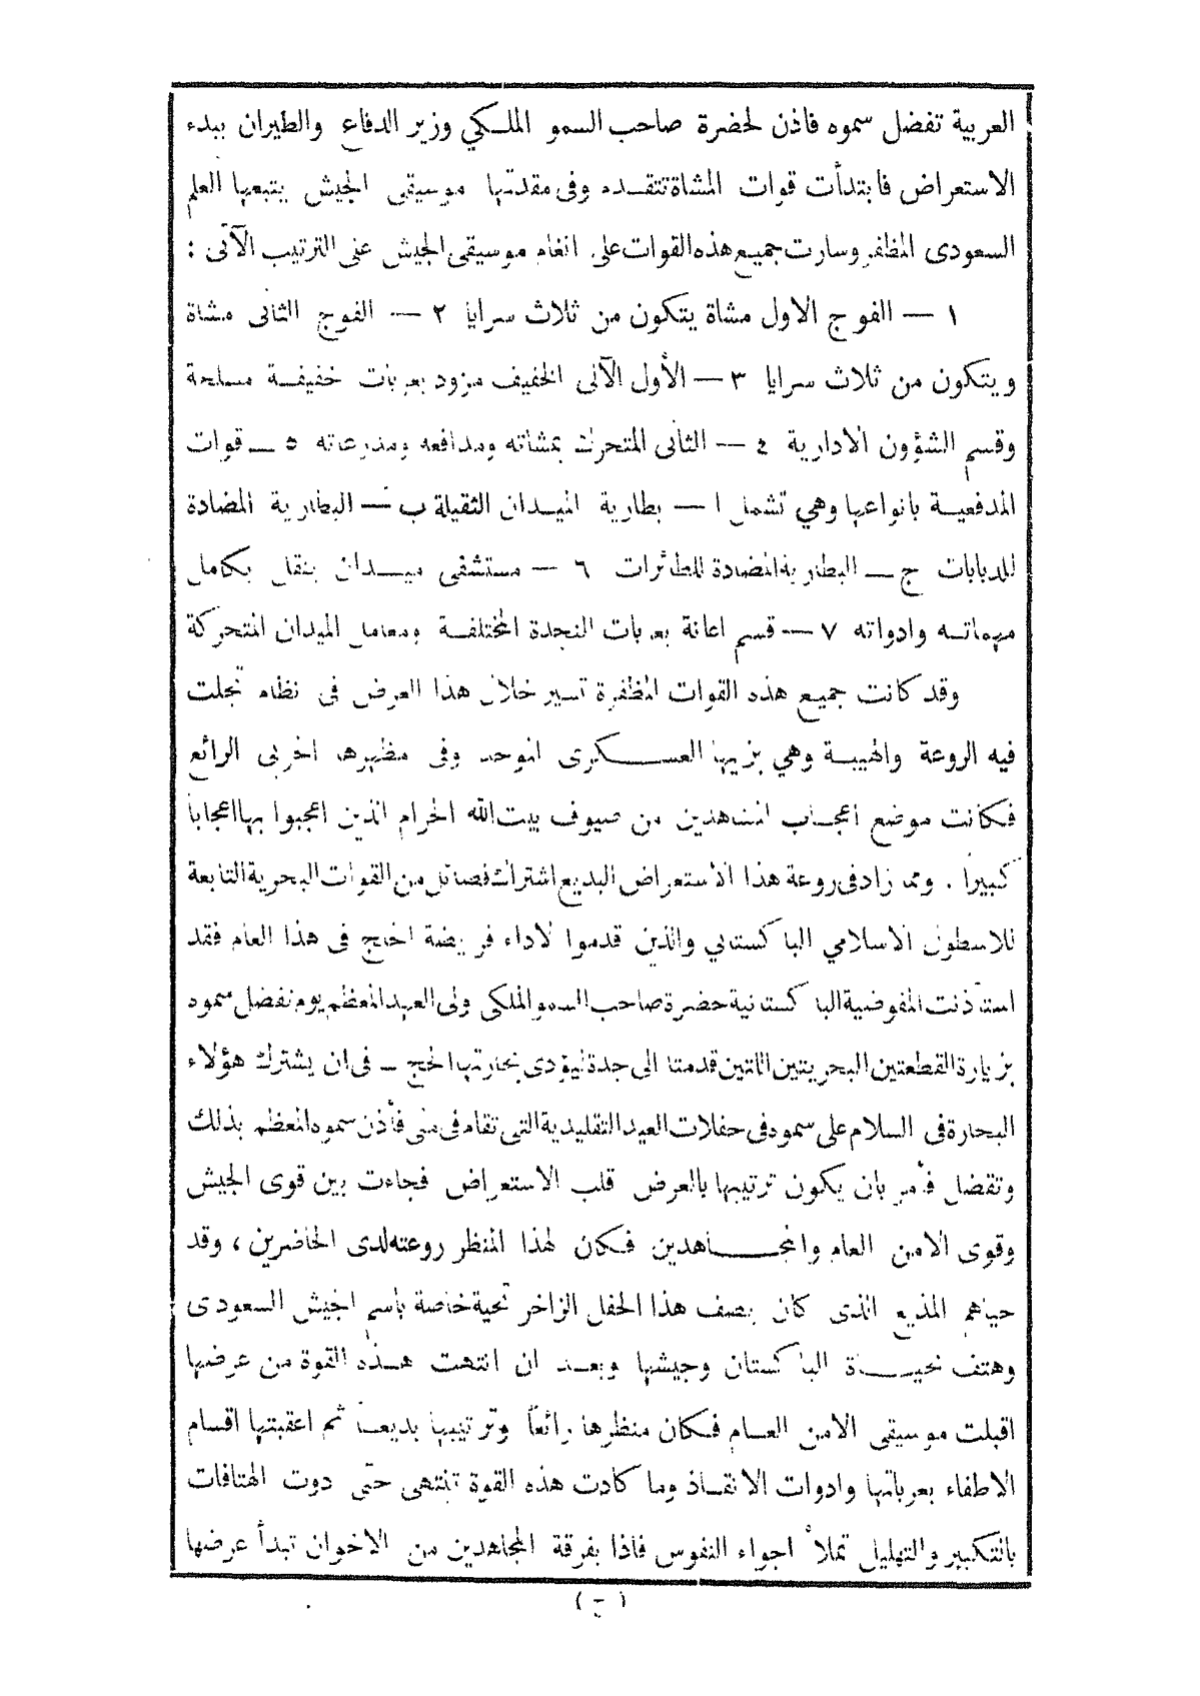 العربية تفضل سموه فاذن لحضرة صاحب السمو الملكي وزير الدفاع والطيران ببدء
الاستعراض فابتدأت قوات المشاة تتقدم وفى مقدمتها موسيقى الجيش يتبعها العلم
السعودى المظفر وسارت جميع هذه القوات على انغام موسيقى الجيش على الترتيب الآتى :
١ — الفوج الاول مشاة يتكون من ثلاث سرايا ٢ — الفوج الثانى مشاة
ويتكون من ثلاث سرايا ٣ — الأول الآلى الخفيف مزود بعربات خفيفة مسلحة
وقسم الشؤون الادارية ٤ — الثانى المتحرك بمشاته ومدافعه ومدرعاته ٥ — قوات
المدفعية بانواعها وهي تشمل ا — بطارية الميدان الثقيلة ب — البطارية المضادة
للدبابات ج — البطارية المضادة للطائرات ٦ — مستشفى ميدان ينقل بكامل
مهماته وادواته ٧ — قسم اعانة بعربات النجدة المختلفة ومعامل الميدان المتحركة
وقد كانت جميع هذه القوات المظفرة تسير خلال هذا العرض فى نظام تجلت
فيه الروعة والهيبة وهي بزيها العسكرى الموحد وفى مظهرها الحربى الرائع
فكانت موضع اعجاب المشاهدين من ضيوف بيت الله الحرام الذين اعجبوا بها اعجابا
كبيرا . ومما زاد فى روعة هذا الاستعراض البديع اشتراك فصائل من القوات البحرية التابعة
للاسطول الاسلامي الباكستاني والذين قدموا لاداء فريضة الحج فى هذا العام فقد
استأذنت المفوضية الباكستانية حضرة صاحب السمو الملكى ولى العهد المعظم يوم تفضل سموه
بزيارة القطعتين البحريتين اللتين قدمتا الى جدة ليؤدى بحارتها الحج — فى ان يشترك هؤلاء
البحارة فى السلام على سموه فى حفلات العيد التقليدية التى تقام فى منى فأذن سموه المعظم بذلك
وتفضل فأمر بان يكون ترتيبها بالعرض قلب الاستعراض فجاءت بين قوى الجيش
وقوى الامن العام والمجاهدين فكان لهذا المنظر روعته لدى الحاضرين ، وقد
حياهم المذيع الذى كان يصف هذا الحفل الزاخر تحية خاصة باسم الجيش السعودى
وهتف بحياة الباكستان وجيشها وبعد ان انتهت هذه القوة من عرضها
اقبلت موسيقى الامن العام فكان منظرها رائعاً وترتيبها بديعاً ثم اعقبتها اقسام
الاطفاء بعرباتها وادوات الانقاذ وما كادت هذه القوة تنتهى حتى دوت الهتافات
بالتكبير والتهليل تملأ اجواء النفوس فاذا بفرقة المجاهدين من الاخوان تبدأ عرضها